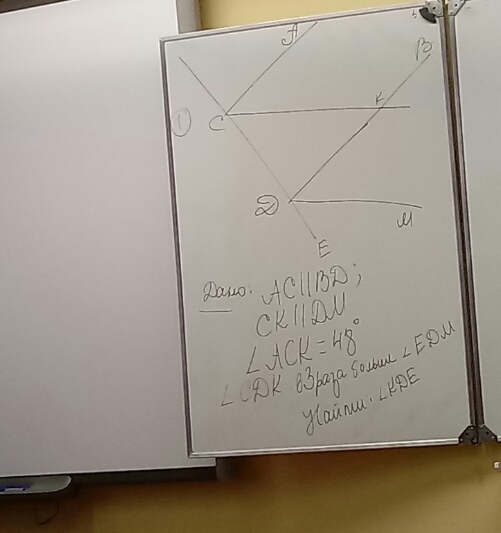 A
B
1
C
K
D
M
E
Дано: AC||BD;
CK||DM
∠ACK = 48°
∠CDK в 3 раза больш ∠EDM
Найти: ∠KDE